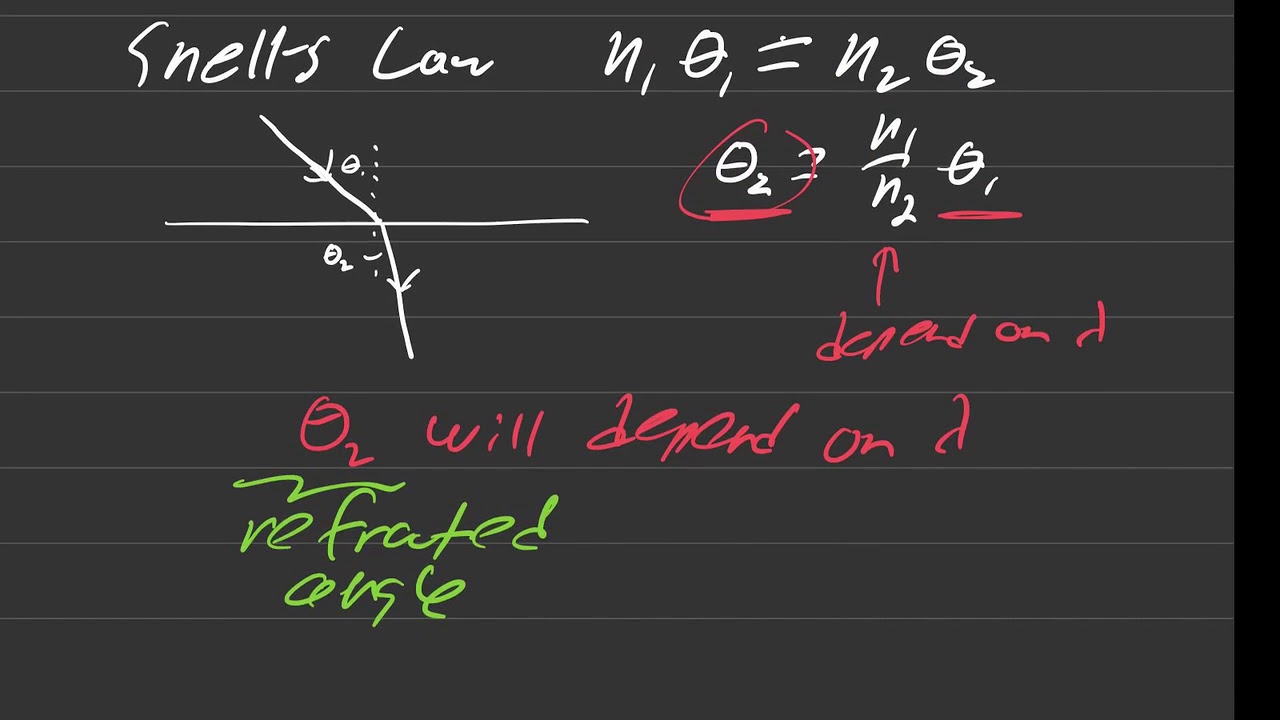 Snell's Law n₁ θ₁ = n₂ θ₂
θ₁
θ₂ = n₁/n₂ θ₁
θ₂
depend on λ
θ₂ will depend on λ
refrated
angle